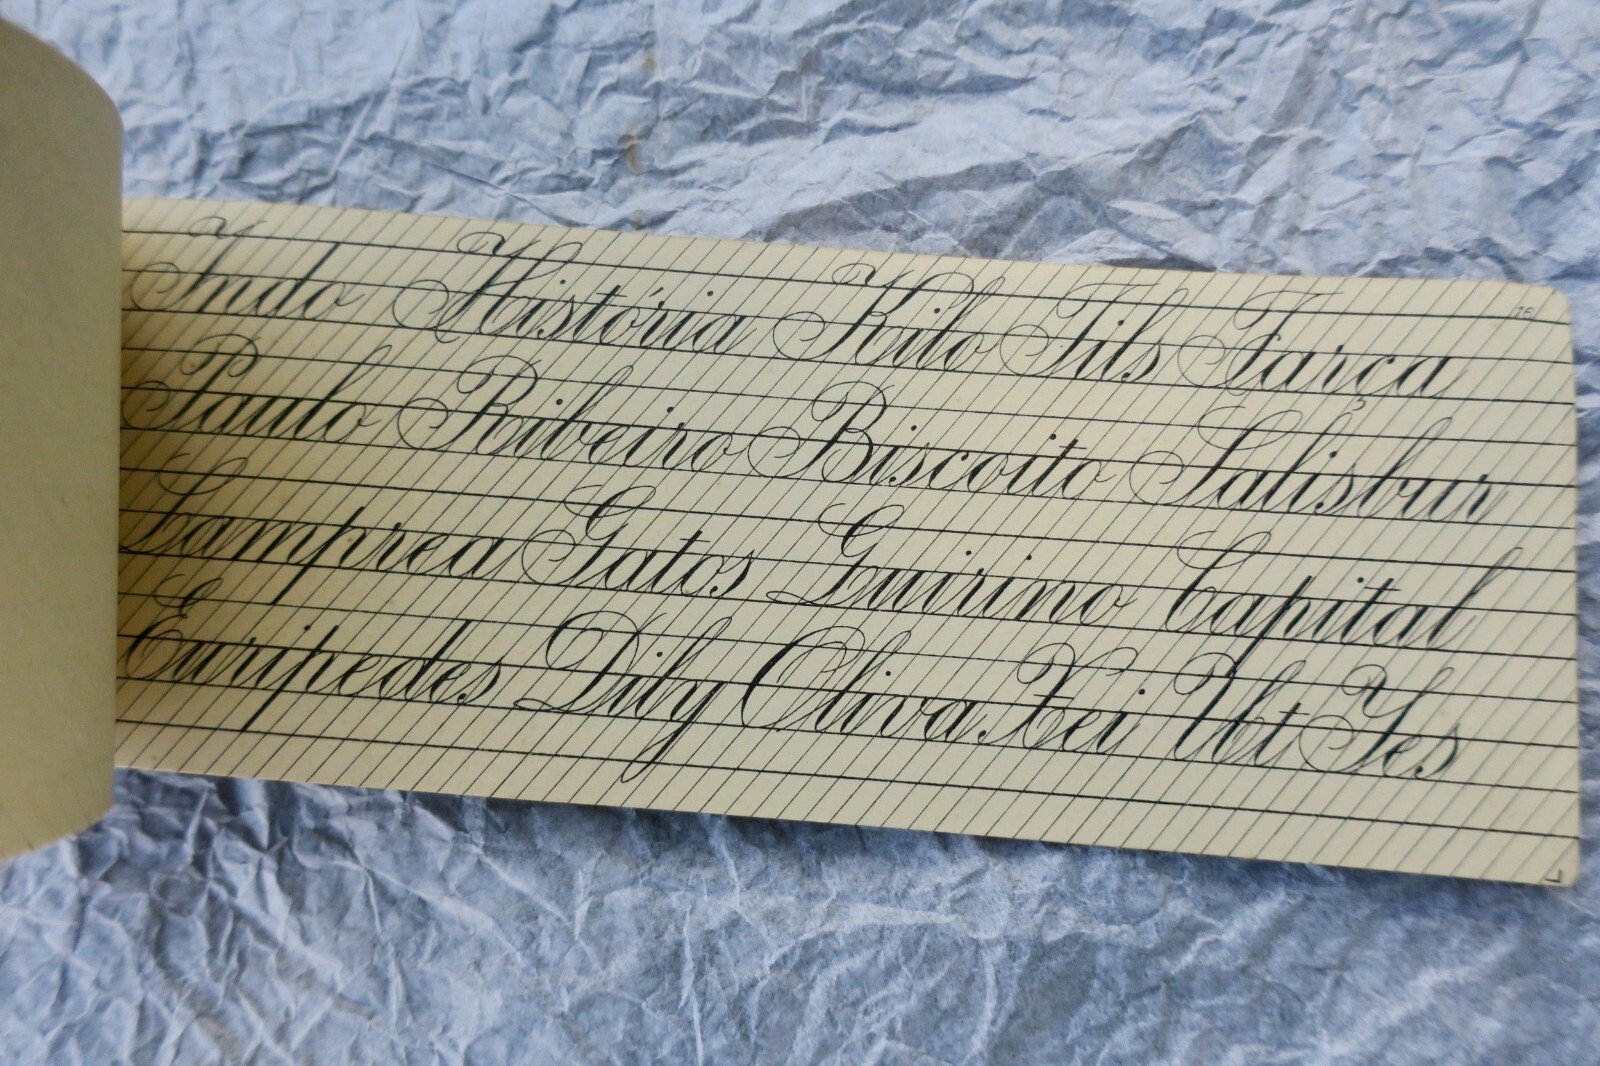 Indo História Kilo Tils Farça
Paulo Ribeiro Biscoito Salisbur
Lamprea Gatos Guirino Capital
Euripedes Dily Oliva Xei Ut Yes